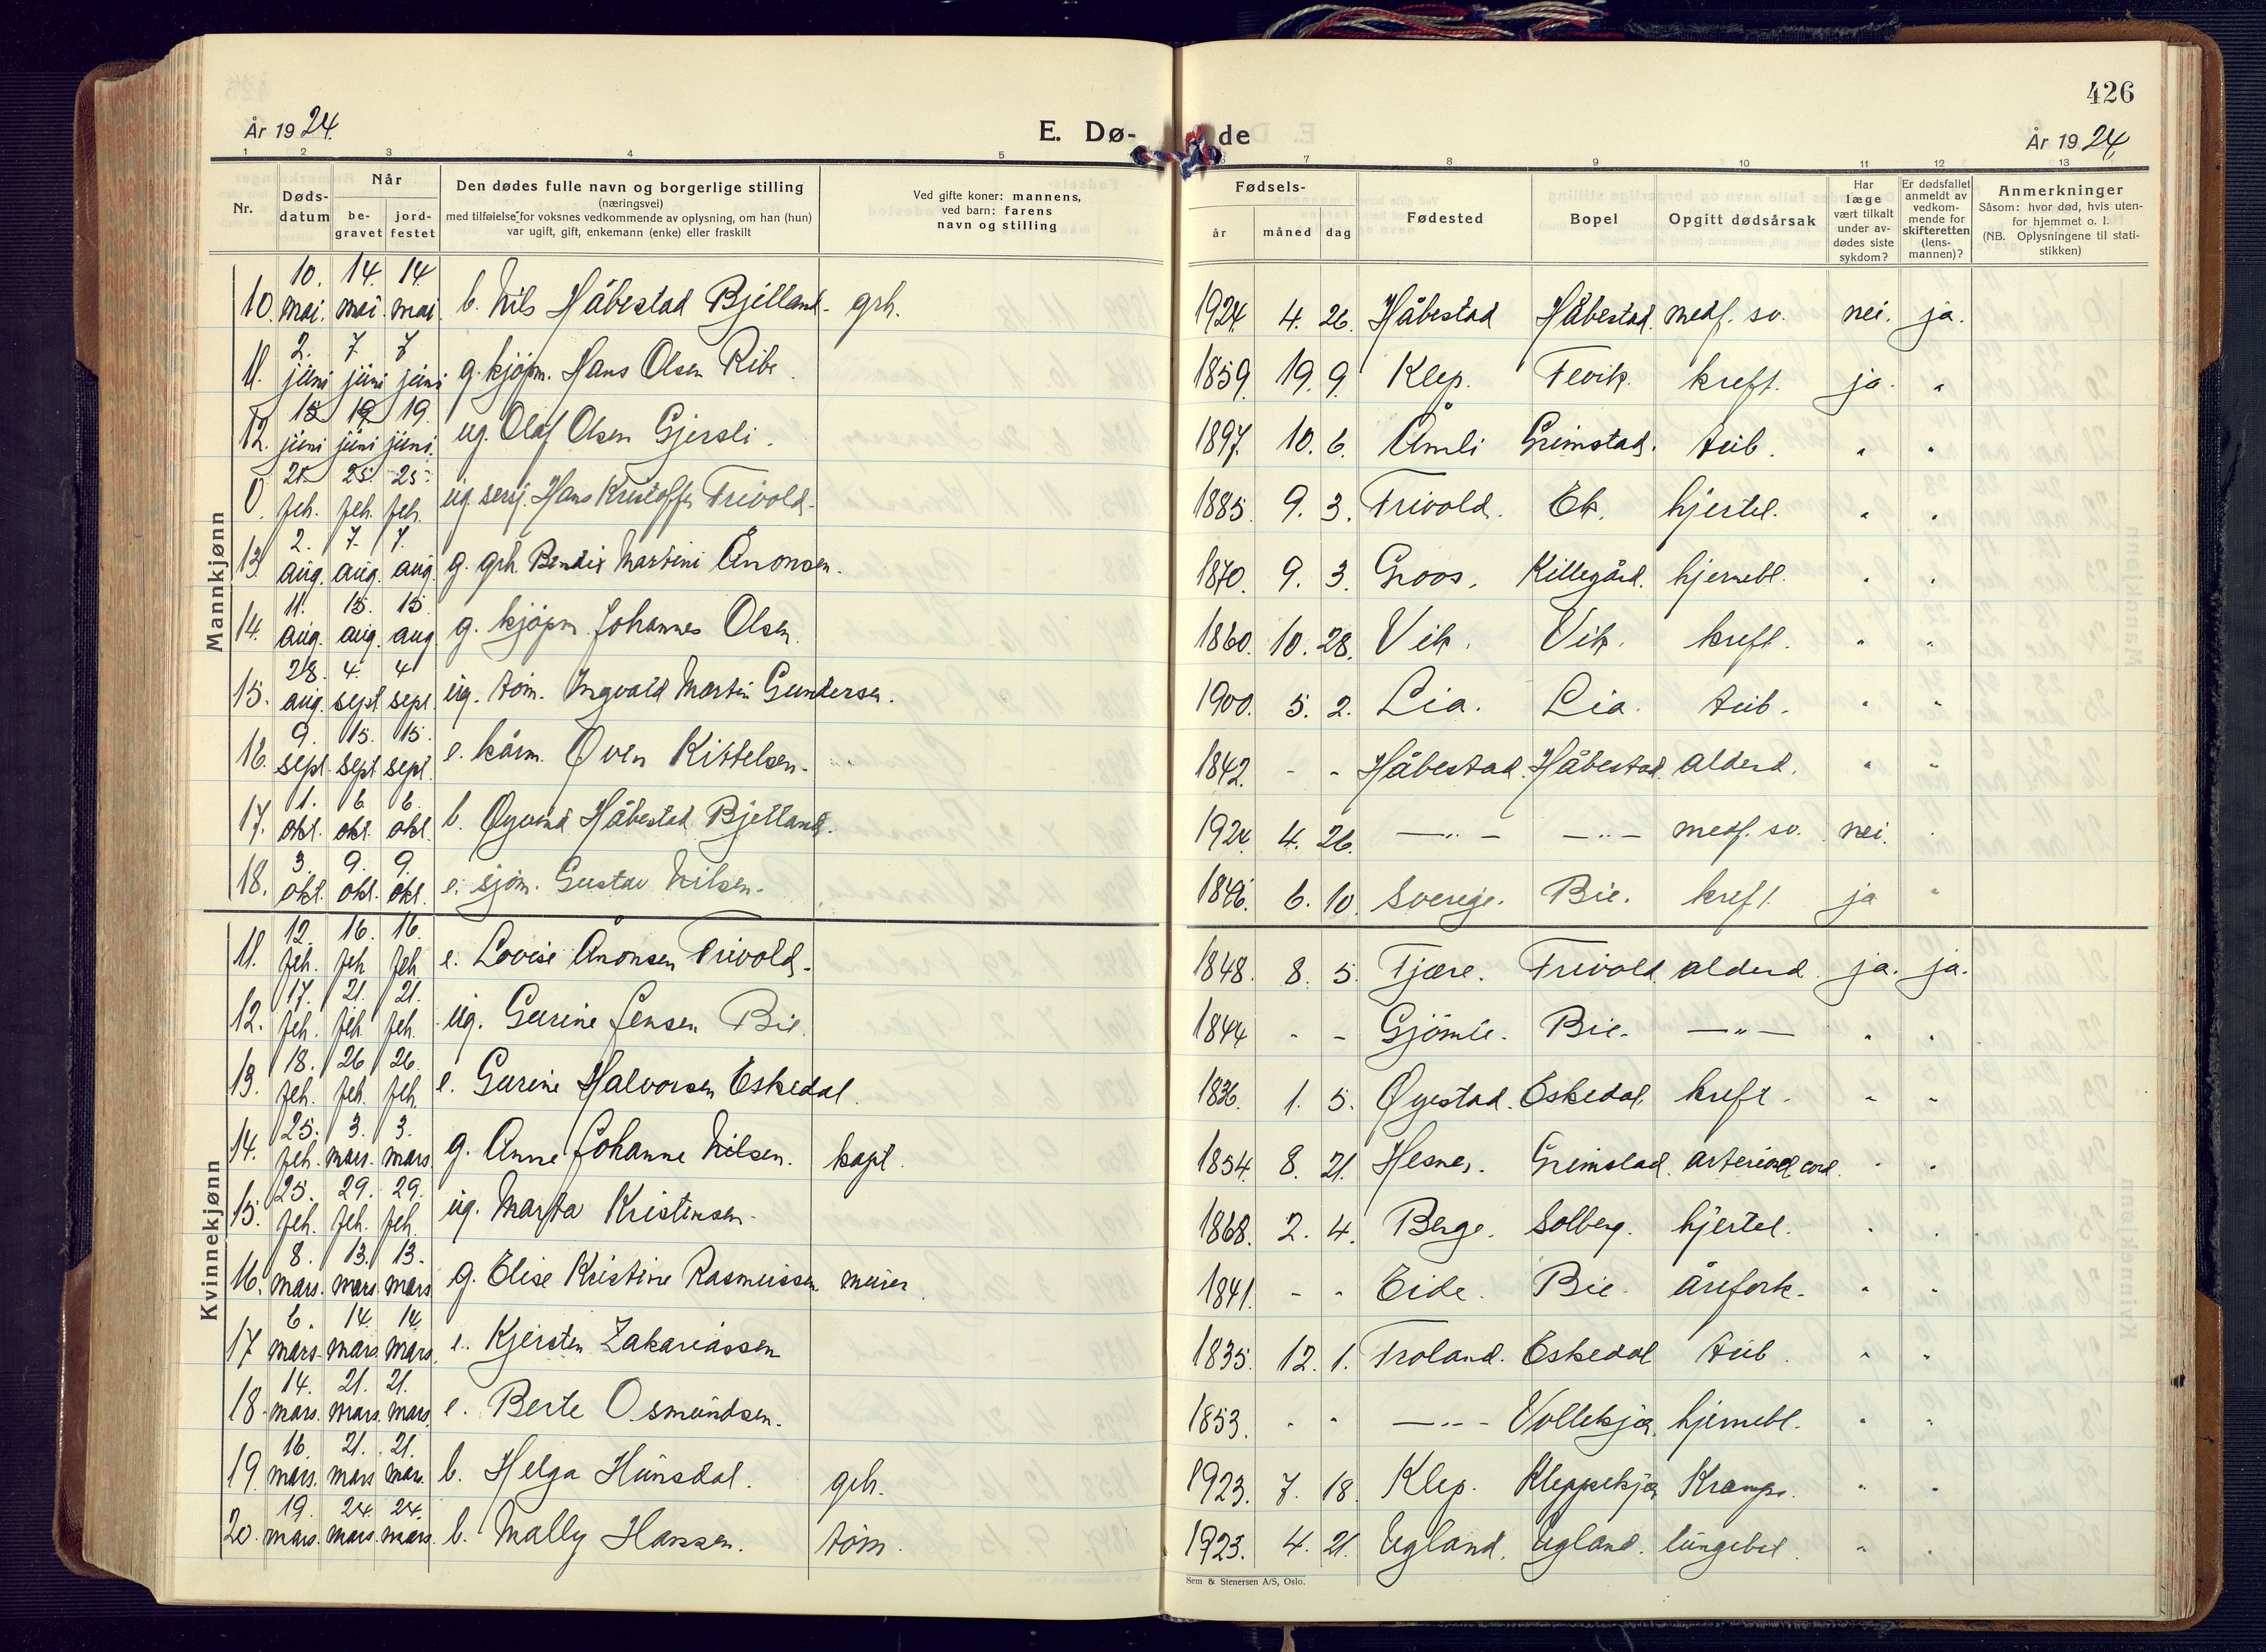 426
År 1924.
E. Døde
År 1924
1 2 3 4 5 6 7 8 9 10 11 12 13
Nr. Dødsdatum Når begravet jordfestet
Den dødes fulle navn og borgerlige stilling
(næringsvei)
med tilføielse for voksnes vedkommende av oplysning, om han (hun)
var ugift, gift, enkemann (enke) eller fraskilt
Ved gifte koner: mannens,
ved barn: farens
navn og stilling
Fødsels- år måned dag
Fødested
Bopel
Opgitt dødsårsak
Har læge vært tilkalt under avdødes siste sykdom?
Er dødsfallet anmeldt av vedkommende for skifteretten (lensmannen)?
Anmerkninger
Såsom: hvor død, hvis utenfor hjemmet o. l.
(NB. Oplysningene til statistikken)
Mannkjønn
10. 10. mai. 14. mai. 14. mai b. Nils Håbestad Bjelland. grh. 1924 4. 26. Håbestad Håbestad. medf. sv. nei. ja.
11. 2. juni 7. juni 7 juni g. kjøpm. Hans Olsen Ribe. 1859. 19. 9. Klep. Fevik. kreft. ja. "
12. 15 juni 19 juni 19. juni. ug. Olaf Olsen Gjersli. 1897. 10. 6. Åmli Grimstad. tub. " "
0. 21. feh. 25. feh. 25. feh. ug. sersj. Hans Kristoffer Trivold. 1885. 9. 3. Trivold. Ek. hjertel. " "
13. 2. aug. 7. aug. 7. aug. g. grh. Bendix Martini Ånonsen. 1870. 9. 3. Groos. Killegård. hjernebl. " "
14. 11. aug. 15. aug. 15. aug g. kjøpm. Johannes Olsen. 1860. 10. 28. Vik. Vik. kreft. " "
15. 28. aug. 4. sept 4 sept. ug. tøm. Ingvald Martin Gundersen. 1900. 5. 2. Lia. Lia. tub. " "
16. 9. sept. 15. sept 15. sept. e. kårm. Oven Kittelsen. 1842. - - Håbestad. Håbestad. alderd. " "
17. 1. okt. 6 okt 6. okt. b. Øyvind Håbestad Bjelland. 1924. 4. 26. —"— —"— medf. sv. nei. "
18. 3. okt. 9. okt. 9. okt. e. sjøm. Gustav Nilsen. 1846. 6. 10. Sverige. Bie. kreft. ja "
Kvinnekjønn
11. 12. feh. 16. feh 16. feh. e. Lovise Ånonsen Trivold. 1848. 8. 5. Fjære. Trivold. alderd. ja. ja.
12. 17. feh. 21. feh. 21. feh. ug. Gurine Jensen Bie. 1844 - - Gjømle. Bie. —"— " "
13. 18. feh. 26 feh. 26. feh. e. Gurine Halvorsen Eskedal. 1836. 1. 5. Øyestad. Eskedal. kreft. " "
14. 25. feh. 3. mars. 3. mars. g. Anne Johanne Nilsen. kapt. 1854. 8. 21. Hesnes. Grimstad. " "
15. 25. feh. 29. feh. 29. feh. ug. Marta Kristensen. 1868. 2. 4. Berge. Solberg. hjertel. " "
16. 8. mars. 13. mars 13. mars g. Elise Kristine Rasmussen murer. 1841. - - Eide. Bie. årefork. " "
17 6. mars. 14. mars. 14. mars. e. Kjersten Zakariassen 1835. 12. 1. Froland. Eskedal tub. " "
18. 14. mars. 21. mars. 21. mars. e. Berte Osmundsen. 1853. " " —"— Vollekjær. hjernebl. " "
19 16. mars. 21. mars 21. mars. b. Helga Hunsdal. grh. 1923. 7. 18. Klep. Kleppekjær Krampe. " "
20. 19. mars. 24. mars. 24. mars. b. Mally Hansen. tøm. 1923. 4. 21. Ugland. Ugland. lungebet. " "
Sem & Stenersen A/S, Oslo.